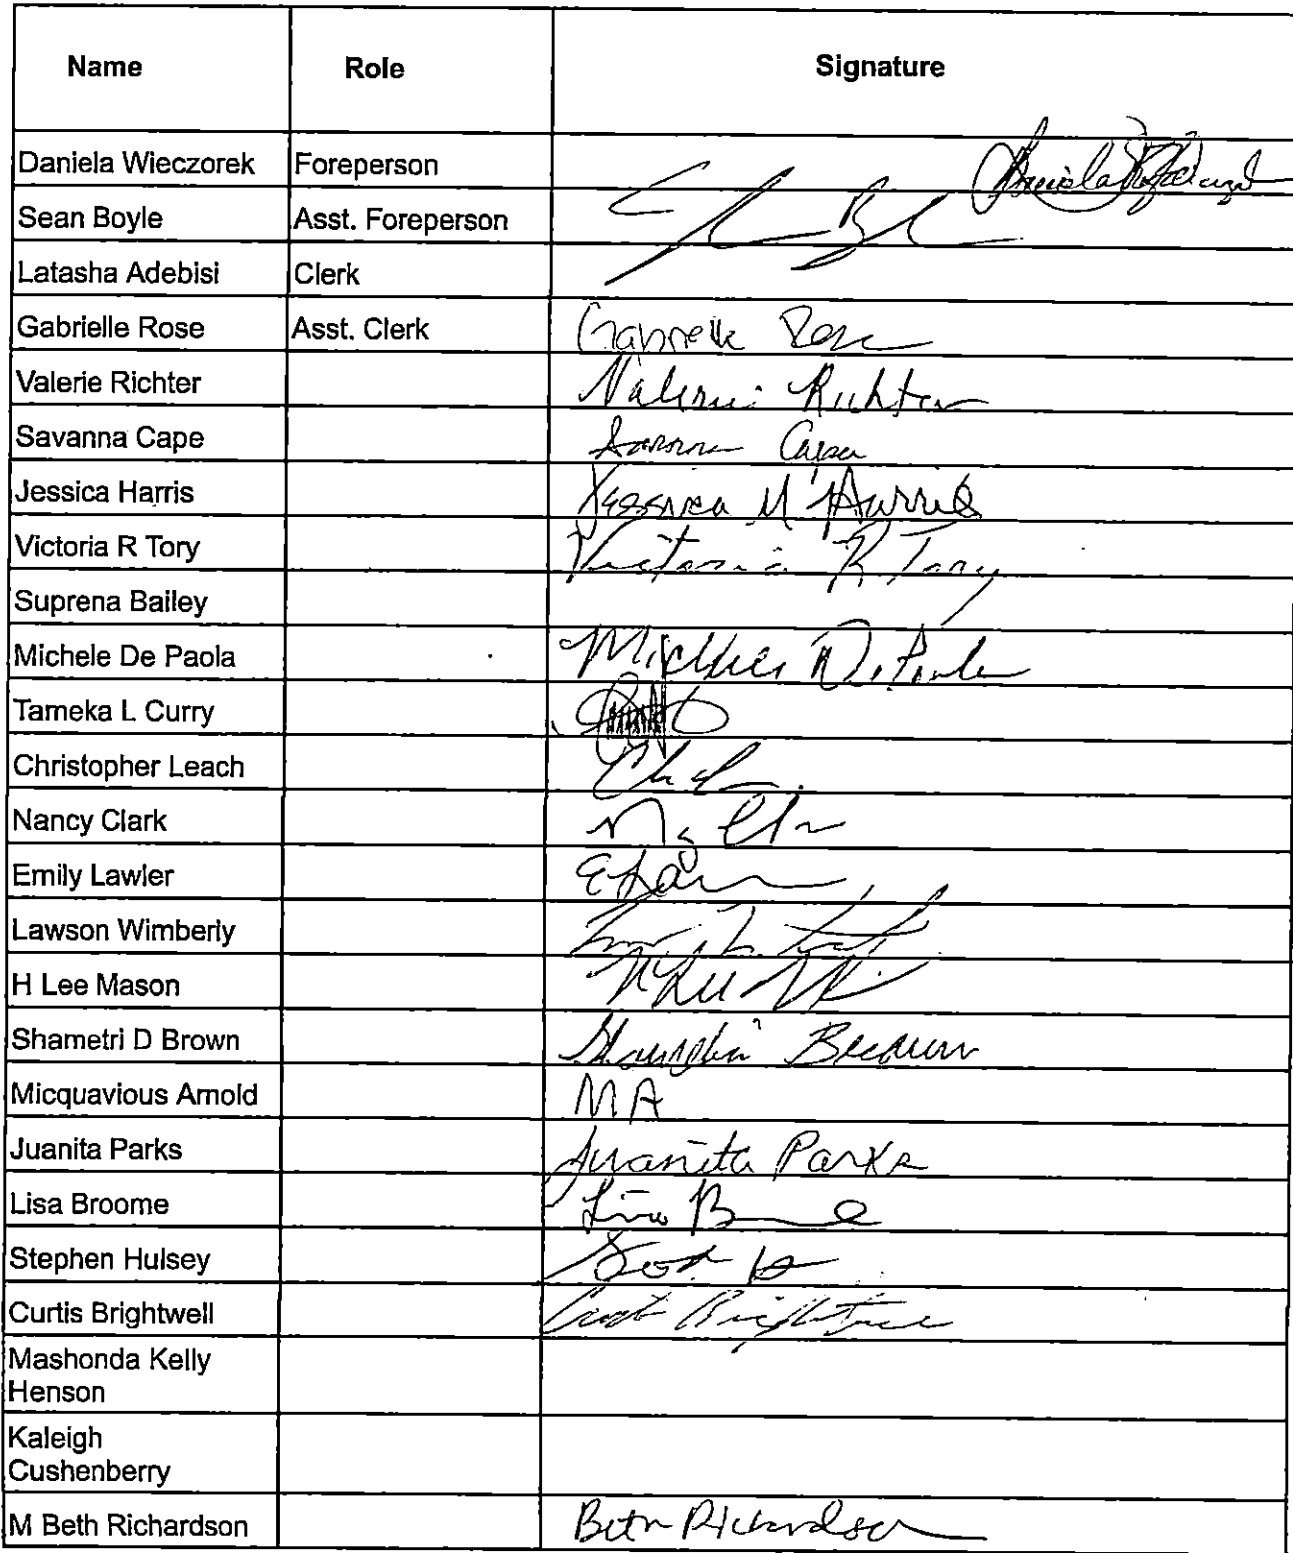 Name Role Signature
Daniela Wieczorek Foreperson
Sean Boyle Asst. Foreperson
Latasha Adebisi Clerk
Gabrielle Rose Asst. Clerk Gabrielle Rose
Valerie Richter Valerie Richter
Savanna Cape
Jessica Harris Jessica M Harris
Victoria R Tory Victoria R Tory
Suprena Bailey
Michele De Paola
Tameka L Curry
Christopher Leach
Nancy Clark
Emily Lawler
Lawson Wimberly
H Lee Mason
Shametri D Brown
Micquavious Arnold MA
Juanita Parks Juanita Parks
Lisa Broome
Stephen Hulsey
Curtis Brightwell
Mashonda Kelly
Henson
Kaleigh
Cushenberry
M Beth Richardson Beth Richardson